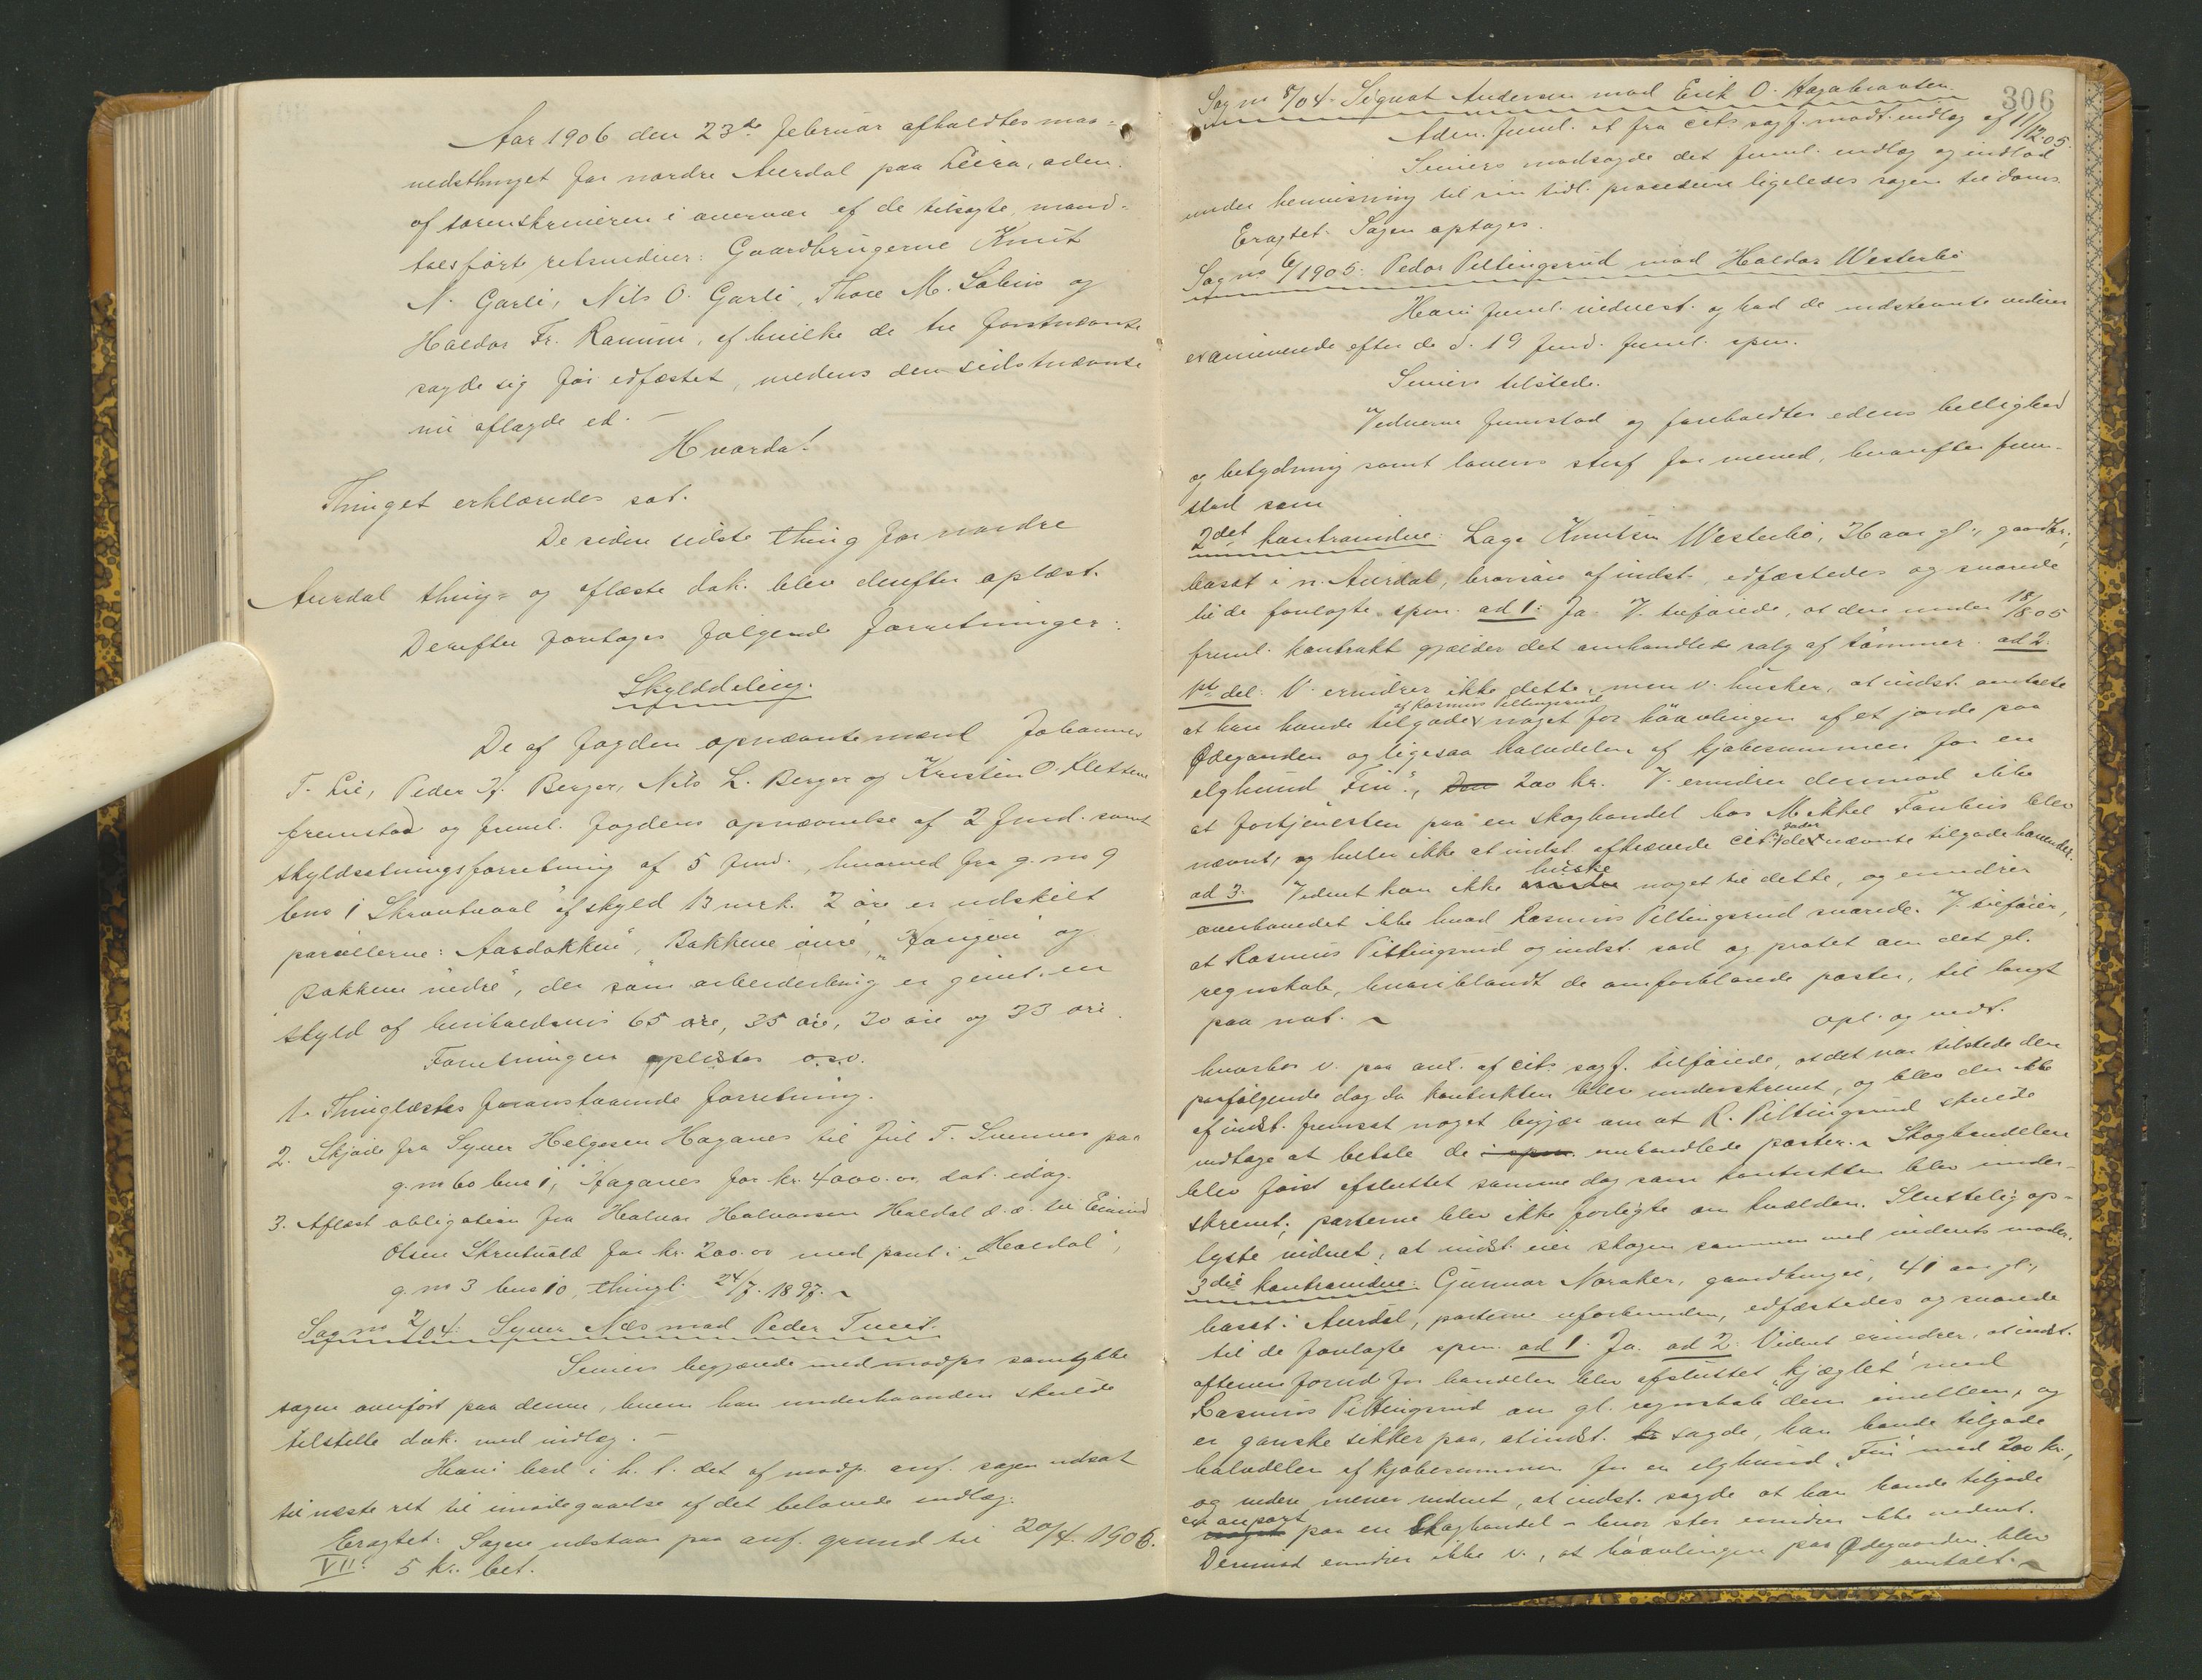 Aar 1906 den 23de februar afholdtes maa-
nedsthinget for nordre Aurdal paa Leira, adm.
af sorenskriveren i overvær af de tilsagte, mand-
talsførte retsvidner: Gaardbrugerne Knut
N. Garli, Nils O. Garli, Thore M. Sæbuio og
Haldor Fr. Ranum, af hvilke de tre førstnævnte
sagde sig før edfæstet, medens den sidstnævnte
nu aflagde ed. —
Hvorda!
Thinget erklæredes sat.
De siden sidste thing for nordre
Aurdal thing- og aflæste dok. blev derefter oplæst.
Derefter foretages følgende forretninger:
Skylddeling.
De af fogden opnævnte mænd Johannes
T. Lie, Peder Kr. Berger, Nils L. Berger og Kristen O. Kletten
fremstod og freml. fogdens opnævnelse af 2 fmd. samt
skyldsætningsforretning af 5 fmd., hvorved fra g. no 9
bno 1 Skrautvaal af skyld 13 mrk. 2 øre er udskilt
parcellerne: "Aasdokken", "Bakkene øvre", "Haugen" og
"Bakkene nedre", der som arbeiderbrug er givet en
skyld af henholdsvis 65 øre, 35 øre, 30 øre og 33 øre.
Forretningen oplæstes o.s.v.
1. Thinglæstes foranstaaende forretning.
2. Skjøde fra Syver Helgesen Haganes til Jul T. Svennes paa
g. no 60 bno 1, Haganes for kr. 4000.00, dat. idag.
3. Aflæst obligation fra Halvor Halvorsen Haldal d. æ. til Eivind
Olsen Skrutvold for kr. 200.00 med pant i "Heoldal",
g. no 3 bno 10, thingl. 24/7. 1897.
Sag no 2/04: Syver Næs mod Peder Tveit.
Smiers begjærede med modps samtykke
sagen overført paa denne, hvem han underhaanden skulde
tilstille dok. med indlæg. —
Hans bad i h. t. det af modp. anf. sagen udsat
til næste ret til imødegaaelse af det belovede indlæg.
Eragtet: Sagen udstaar paa anf. grund til 20/4. 1906.
VII: 5 kr. bet.
306
Sag no 8/04. Signat Andersen mod Erik O. Hagabraaten.
Adm. freml. et fra cits sagf. modt. indlæg af 11/12.05.
Smiers modsagde det freml. indlæg og indlod
under henvisning til sin tidl. procedure ligeledes sagen til doms.
Eragtet. Sagen optages.
Sag no 6/1905: Peder Piltingsrud mod Haldor Westerbø
Hans freml. vidnest. og bad de indstevnte vidner
examinerede efter de d. 19 fmd. freml. spm.
Smiers tilstede.
Vidnerne fremstod og foreholdtes edens hellighed
og betydning samt lovens straf for mened, hvorefter frem-
stod som
2det kontravidne: Lage Knutsen Westerbø, 36 aar gl., gaardbr.,
bosat i n. Aurdal, brorsøn af indst., edfæstedes og svarede
til de forelagte spm. ad 1: Ja. V. tilføiede, at den under 18/8 05
freml. kontrakt gjælder det omhandlede salg af tømmer. ad 2.
1ste del: V. erindrer ikke dette, men v. husker, at indst. omtalte
at han havde tilgode af Rasmus Piltingsrud noget for haavlingen af et jorde paa
Ødegaarden og ligesaa halvdelen af kjøbesummen for en
elghund "Fin", 200 kr. V. erindrer derimod ikke
at fortjenesten paa en skoghandel hos Mikkel Fonhus blev
nævnt, og heller ikke at indst. afkrævede cit. fader de nævnte tilgodehavender.
ad 3. Vidnet kan ikke huske noget til dette, og erindrer
overhovedet ikke hvad Rasmus Piltingsrud svarede. V. tilføier,
at Rasmus Piltingsrud og indst. sad og pratet om det gl.
regnskab, hvoriblandt de omforklarede poster, til langt
paa nat.
opl. og vedt.
hvorhos v. paa anl. af cits sagf. tilføiede, at det var tilstede den
paafølgende dag da kontrakten blev underskrevet, og blev der ikke
af indst. fremsat noget begjær om at R. Piltingsrud skulde
vedtage at betale de omhandlede poster. Skoghandelen
blev først afsluttet samme dag som kontrakten blev under-
skrevet; parterne blev ikke forligte om kvælden. Sluttelig op-
lyste vidnet, at indst. eier skogen sammen med vidnets moder.
3die kontravidne: Gunnar Noraker, gaardbruger, 41 aar gl.,
bosat i Aurdal, parterne uforbunden, edfæstedes og svarede
til de forelagte spm. ad 1. Ja. ad 2: Vidnet erindrer, at indst.
aftenen forud for handelen blev afsluttet "kjæglet" med
Rasmus Piltingsrud om gl. regnskab dem imellem, og
er ganske sikker paa, at indst. sagde, han havde tilgode
halvdelen af kjøbesummen for en elghund "Fin" med 200 kr.,
og videre mener vidnet, at indst. sagde at han havde tilgode
en anpart paa en skoghandel – hvor stor erindrer ikke vidnet.
Derimod erindrer ikke v., at haavlingen paa Ødegaarden blev
omtalt.